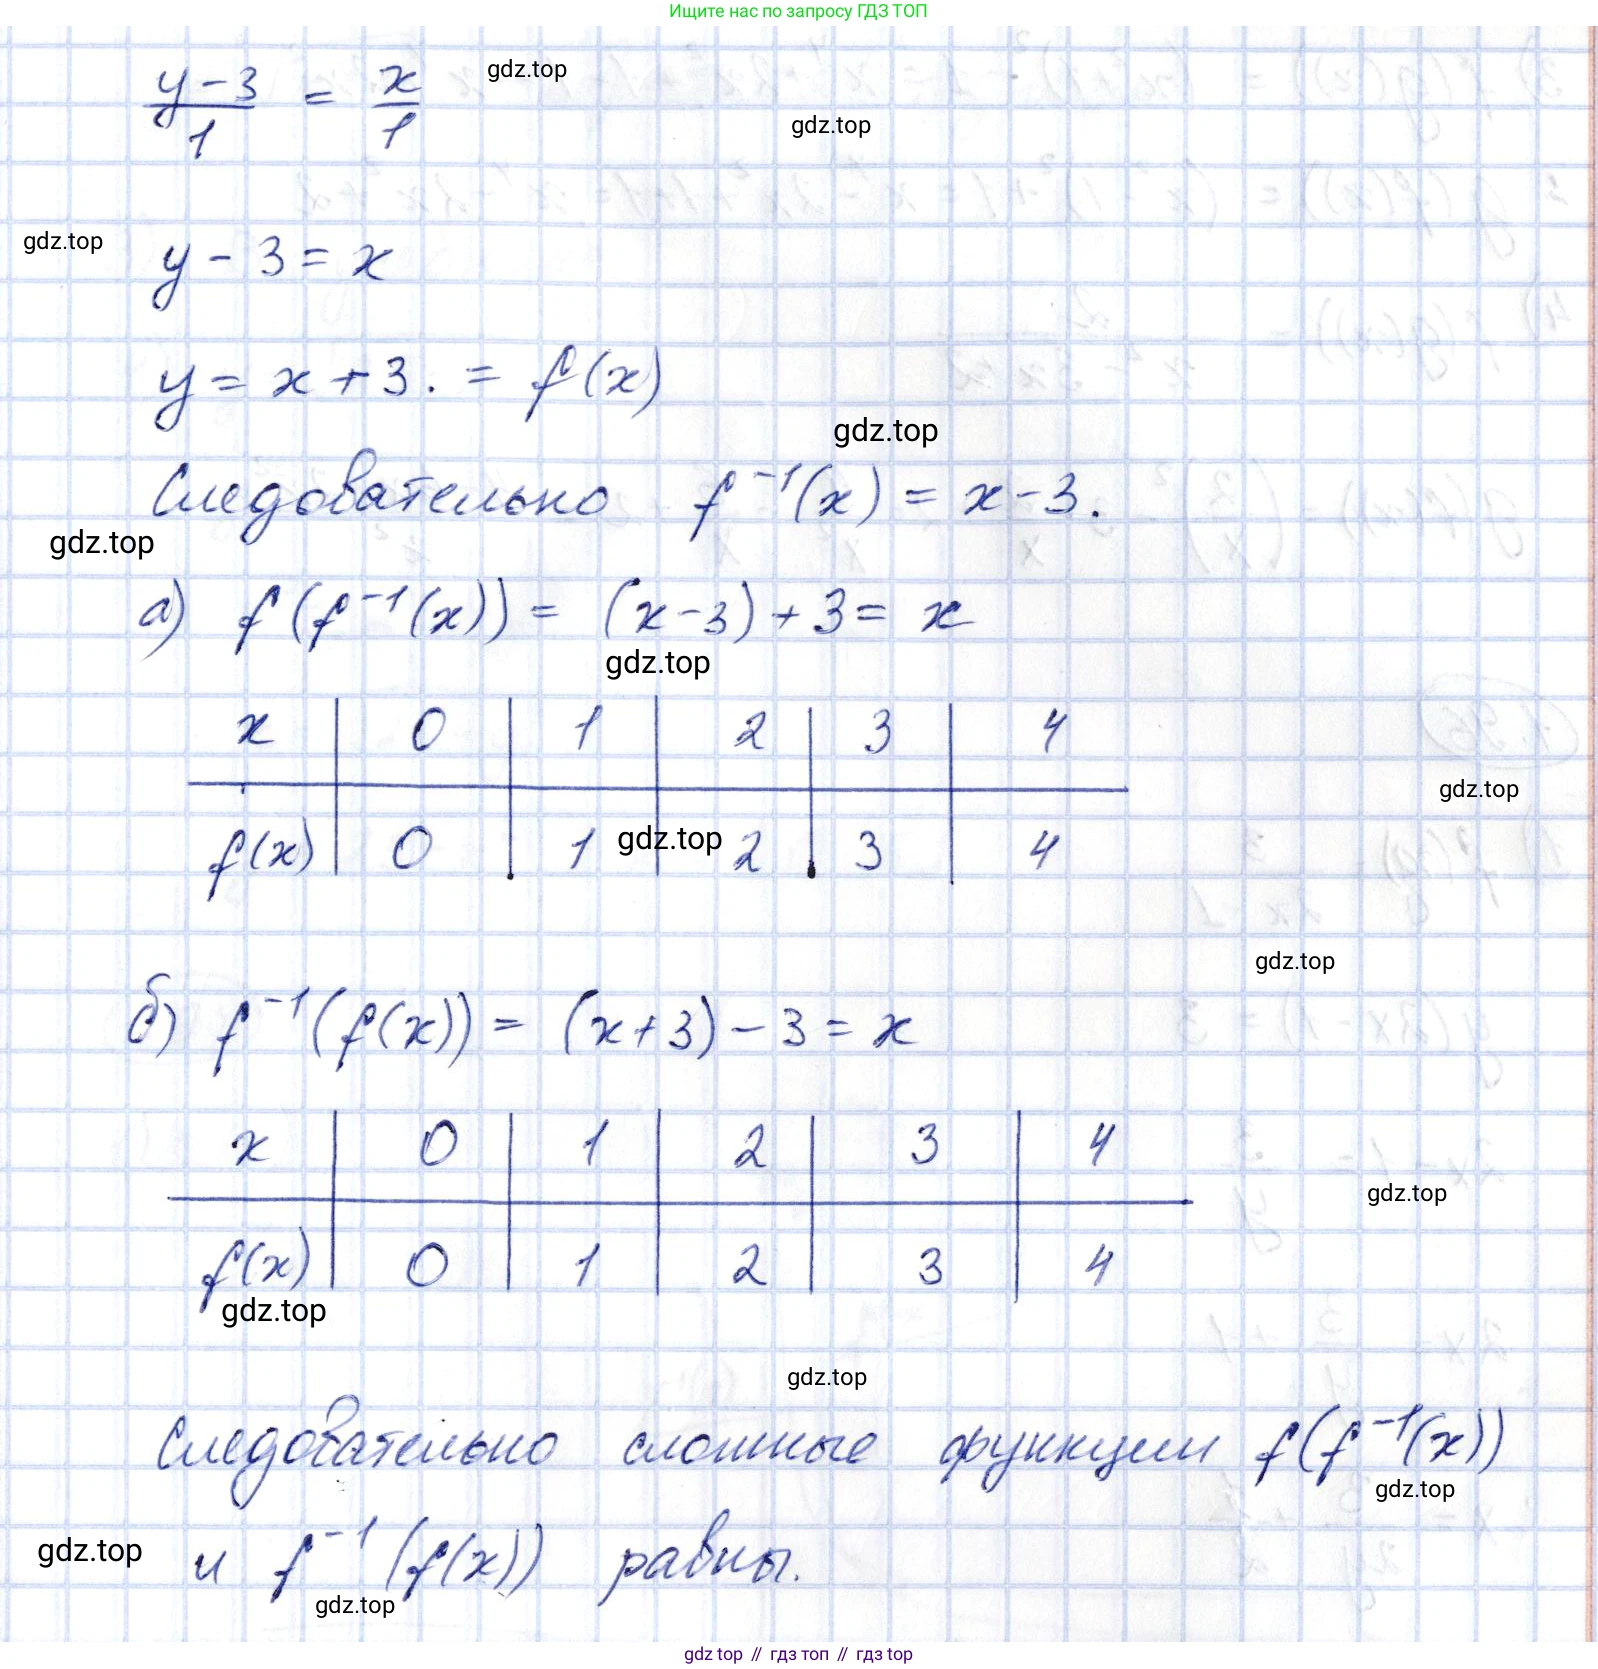 Ищите нас по запросу ГДЗ ТОП
(y-3)/1 = x/1
gdz.top
gdz.top
gdz.top
y - 3 = x
y = x + 3. = f(x)
gdz.top
Следовательно f⁻¹(x) = x - 3.
gdz.top
а) f(f⁻¹(x)) = (x-3) + 3 = x
gdz.top
x | 0 | 1 | 2 | 3 | 4
gdz.top
f(x) | 0 | 1 | 2 | 3 | 4
gdz.top
gdz.top
б) f⁻¹(f(x)) = (x+3) - 3 = x
x | 0 | 1 | 2 | 3 | 4
gdz.top
f(x) | 0 | 1 | 2 | 3 | 4
gdz.top
gdz.top
Следовательно сложные функции f(f⁻¹(x))
gdz.top
и f⁻¹(f(x)) равны.
gdz.top
gdz.top
gdz top // гдз топ // гдз top